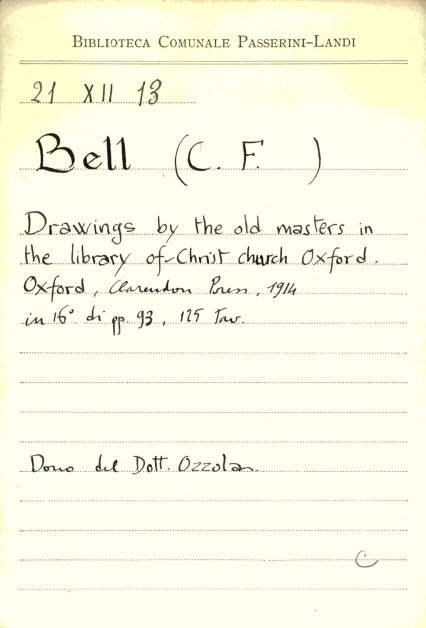 BIBLIOTECA COMUNALE PASSERINI-LANDI
21 XII 13
Bell (C. F. )
Drawings by the old masters in
the library of Christ church Oxford.
Oxford, Clarendon Press, 1914
in 16° di pp. 93, 125 Tav.
Dono del Dott. Ozzola.
C